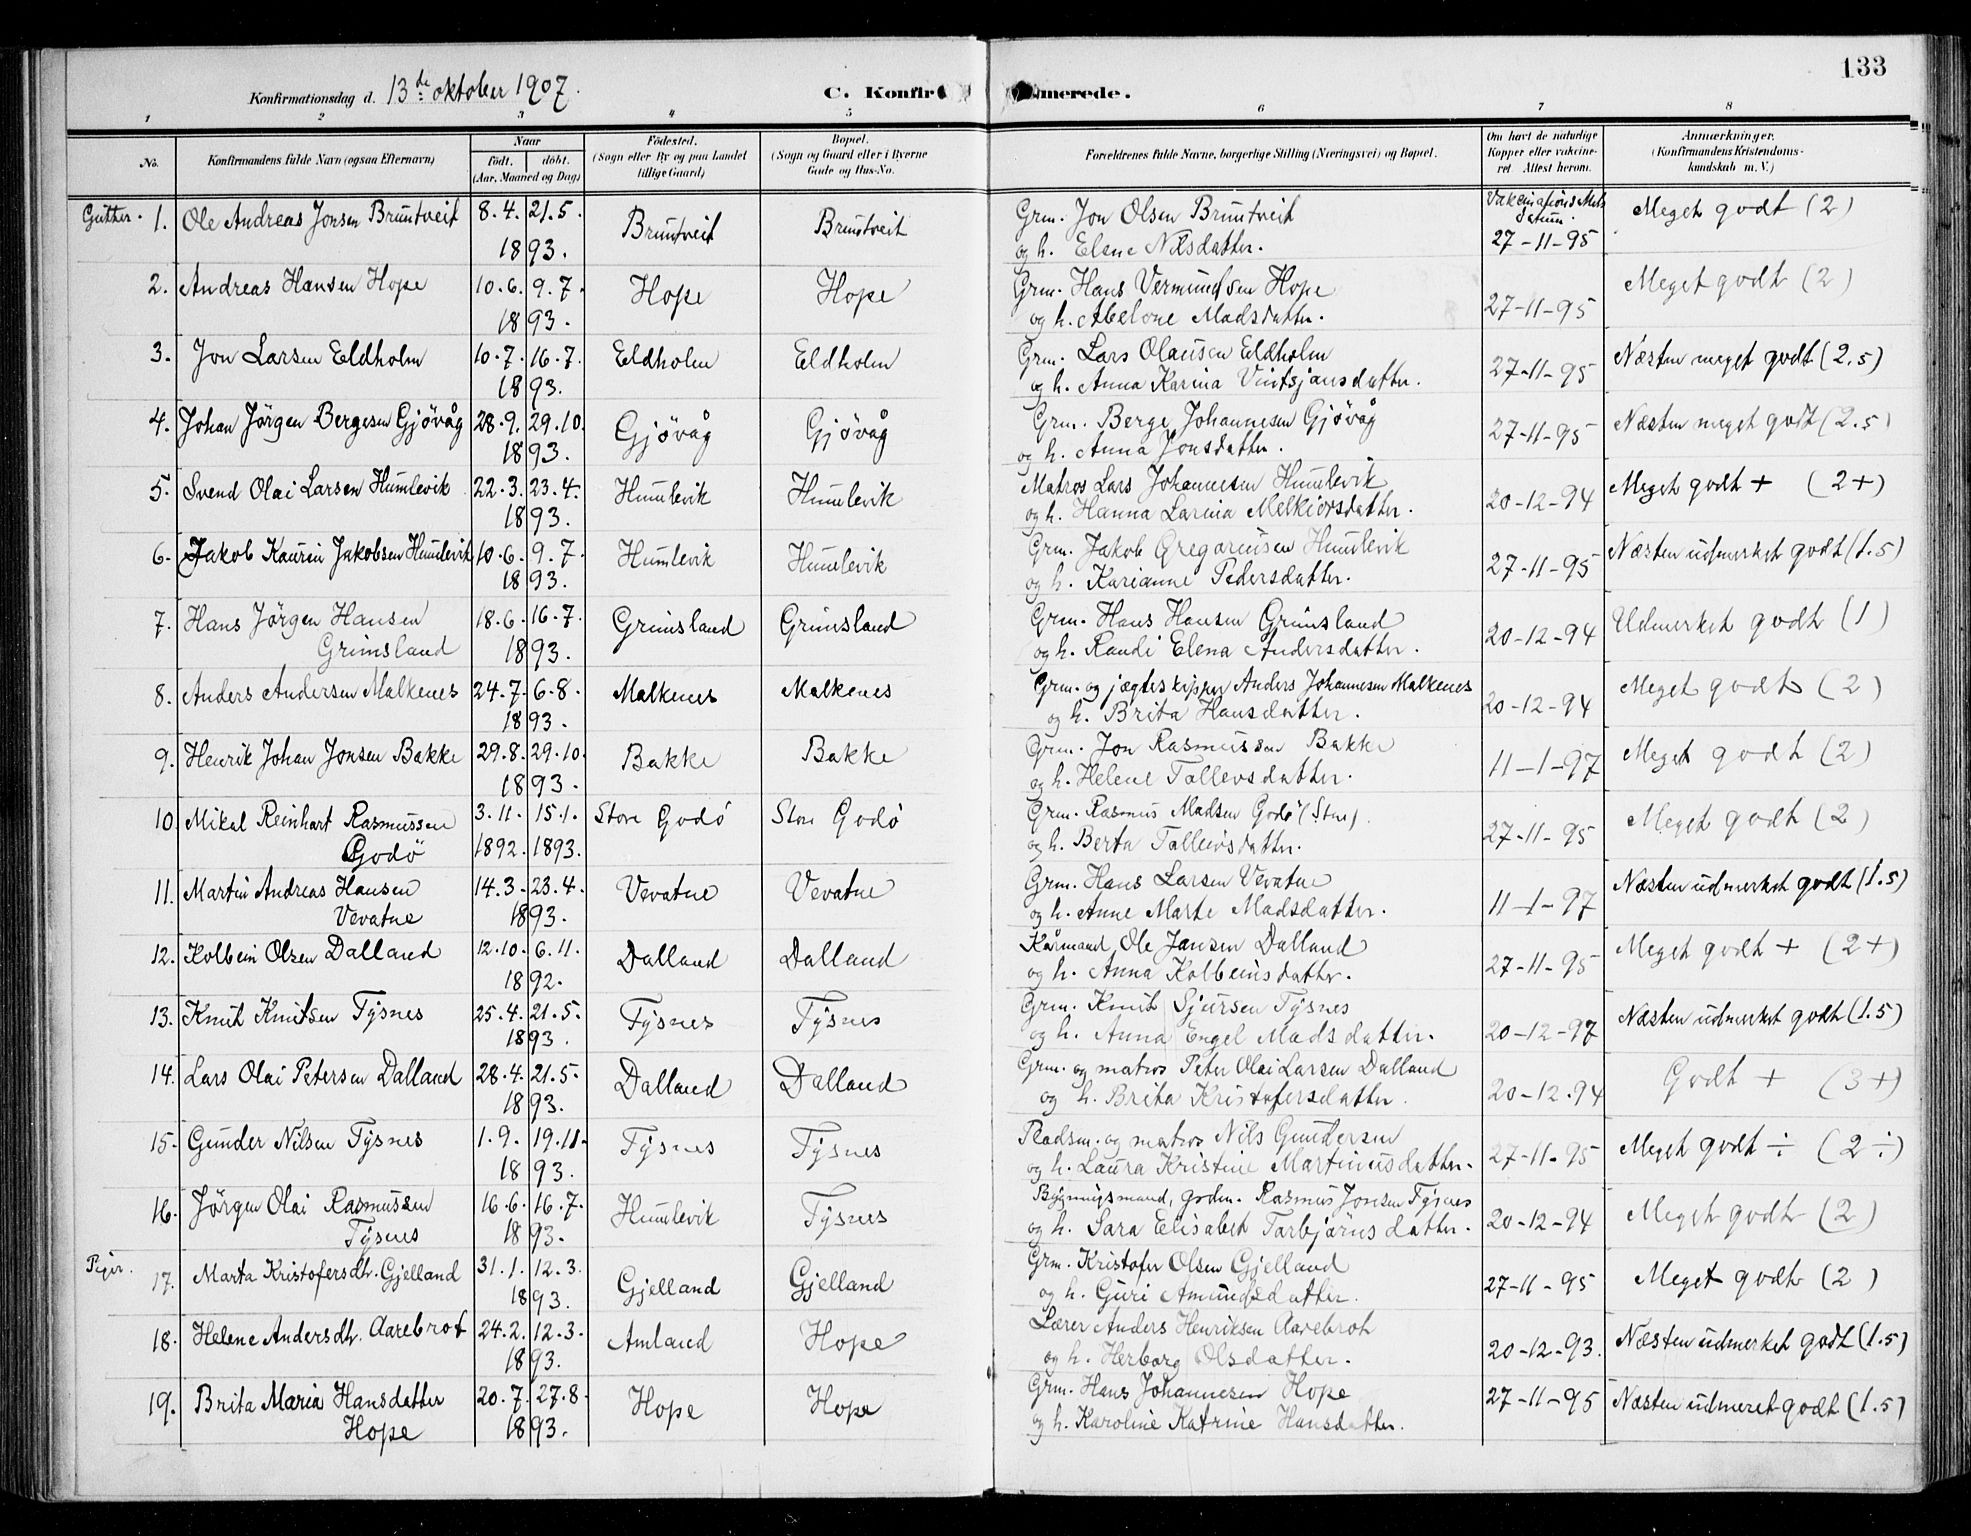 133
Konfirmationsdag d. 13de oktober 1907.
C. Konfir merede.
1 2 3 4 5 6 7 8
No.
Konfirmandens fulde Navn (ogsaa Efternavn)
Naar
født. døbt.
(Aar, Maaned og Dag)
Fødested.
(Sogn eller By og paa Landet
tillige Gaard)
Bopæl.
(Sogn og Gaard eller i Byerne
Gade og Hus-No.
Forældrenes fulde Navne, borgerlige Stilling (Næringsvei) og Bopæl.
Om havt de naturlige
Kopper eller vakcine-
ret Attest herom.
Anmærkninger.
(Konfirmandens Kristendoms-
kundskab m. V.)
Gutter. 1. Ole Andreas Jonsen Bruntveit 8.4. 21.5. Bruntveit Bruntveit Grm. Jon Olsen Bruntveit Vakcinations Att. Meget godt (2)
datum.
1893. og h. Elene Nilsdatter. 27-11-95
2. Andreas Hansen Hope 10.6. 9.7. Hope Hope Grm. Hans Vermundsen Hope 27-11-95 Meget godt (2)
1893. og h. Abelone Madsdatter.
3. Jon Larsen Eldholm 10.7. 16.7. Eldholm Eldholm Grm. Lars Olausen Eldholm 27-11-95 Næsten meget godt (2.5)
1893. og h. Anna Karina Vintsjansdatter.
4. Johan Jörgen Bergesen Gjövåg 28.9. 29.10. Gjövåg Gjövåg Grm. Berge Johannesen Gjövåg 27-11-95 Næsten meget godt (2.5)
1893. og h. Anna Jonsdatter.
5. Svend Olai Larsen Humlevik 22.3. 23.4. Humlevik Humlevik Matros Lars Johannesen Humlevik 20-12-94 Meget godt + (2+)
1893. og h. Hanna Larina Melkiorsdatter.
6. Jakob Kaurin Jakobsen Humlevik 10.6. 9.7. Humlevik Humlevik Grm. Jakob Gregoriusen Humlevik 27-11-95 Næsten udmerket godt (1.5)
1893. og h. Karianne Pedersdatter.
7. Hans Jörgen Hansen 18.6. 16.7. Grimsland Grimsland Grm. Hans Hansen Grimsland 20-12-94 Udmerket godt (1)
Grimsland 1893. og h. Randi Elena Andersdatter.
8. Anders Andersen Malkenes 24.7. 6.8. Malkenes Malkenes Grm. og jægteskipper Anders Johannesen Malkenes 20-12-94 Meget godt (2)
1893. og h. Brita Hansdatter.
9. Henrik Johan Jonsen Bakke 29.8. 29.10. Bakke Bakke Grm. Jon Rasmussen Bakke 11-1-97 Meget godt (2)
1893. og h. Helene Tollevsdatter.
10. Mikal Reinhart Rasmussen 3.11. 15.1. Store Godö Store Godö Grm. Rasmus Madsen Godö (Store). 27-11-95 Meget godt (2)
Godö 1892. 1893. og h. Berta Tolleivsdatter.
11. Martin Andreas Hansen 14.3. 23.4. Vevatne Vevatne Grm. Hans Larsen Vevatne 11-1-97 Næsten udmerket godt (1.5)
Vevatne 1893. og h. Anne Marte Madsdatter.
12. Kolbein Olsen Dalland 12.10. 6.11. Dalland Dalland Kårmand Ole Jansen Dalland 27-11-95 Meget godt + (2+)
1892. og h. Anna Kolbeinsdatter.
13. Knut Knutsen Tÿsnes 25.4. 21.5. Tÿsnes Tÿsnes Grm. Knut Sjursen Tÿsnes 20-12-97 Næsten udmerket godt (1.5)
1893. og h. Anna Engel Madsdatter.
14. Lars Olai Petersen Dalland 28.4. 21.5. Dalland Dalland Grm. og matros Peter Olai Larsen Dalland 20-12-94 Godt + (3+)
1893. og h. Brita Kristofersdatter.
15. Gunder Nilsen Tÿsnes 1.9. 19.11. Tÿsnes Tÿsnes Pladsm. og matros Nils Gundersen 27-11-95 Meget godt ÷ (2÷)
1893. og h. Laura Kristine Martinusdatter.
16. Jörgen Olai Rasmussen 16.6. 16.7. Humlevik Tÿsnes Bygningsmand, grdm. Rasmus Jonsen Tÿsnes 20-12-94 Meget godt (2)
Tÿsnes 1893. og h. Sara Elisabet Torbjörnsdatter.
Piger. 17. Marta Kristofersdtr. Gjelland 31.1. 12.3. Gjelland Gjelland Grm. Kristofer Olsen Gjelland 27-11-95 Meget godt (2)
1893. og h. Guri Amundsdatter.
18. Helene Andersdtr. Aarebrot 24.2. 12.3. Amland Hope Lærer Anders Henriksen Aarebrot 20-12-93. Næsten udmerket godt (1.5)
1893. og h. Herborg Olsdatter.
19. Brita Maria Hansdatter 20.7. 27.8. Hope Hope Grm. Hans Johannesen Hope 27-11-95 Næsten udmeret godt (1.5)
Hope 1893. og h. Karoline Katrine Hansdatter.